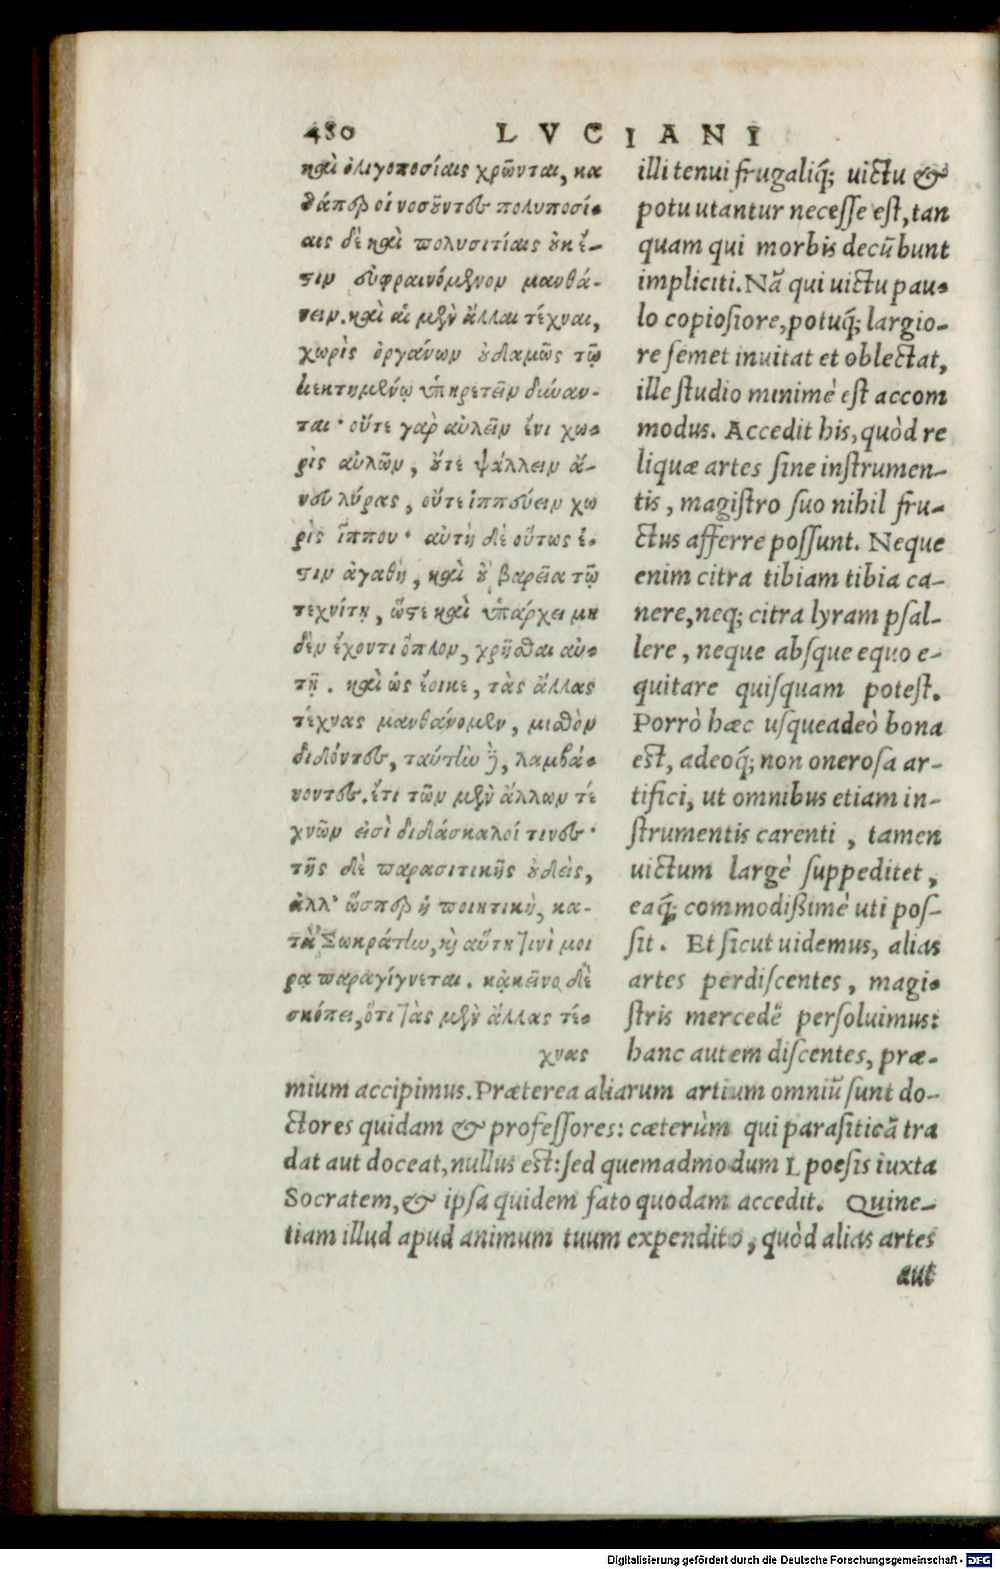 480 LVCIANI
καὶ ὀλιγοποσίαις χρῶνται, κα
θάπερ οἱ νοσοῦντες πολυποσί-
αις δὲ καὶ πολυσιτίαις οὐκ ἔ-
στιν εὐφραινόμενον μανθά-
νειν. καὶ αἱ μὲν ἄλλαι τέχναι,
χωρὶς ὀργάνων οὐδαμῶς τῷ
κεκτημένῳ ὑπηρετεῖν δύναν-
ται· οὔτε γὰρ αὐλεῖν ἔνι χω-
ρὶς αὐλῶν, οὔτε ψάλλειν ἄ-
νευ λύρας, οὔτε ἱππεύειν χω
ρὶς ἵππου· αὐτὴ δὲ οὕτως ἐ-
στιν ἀγαθὴ, καὶ οὐ βαρεῖα τῷ
τεχνίτῃ, ὥστε καὶ ὑπάρχει μη
δὲν ἔχοντι ὅπλον, χρῆσθαι αὐ-
τῇ. καὶ ὡς ἔοικε, τὰς ἄλλας
τέχνας μανθάνομεν, μισθὸν
διδόντες, ταύτην δὲ, λαμβά-
νοντες. ἔτι τῶν μὲν ἄλλων τε
χνῶν εἰσὶ διδάσκαλοί τινες·
τῆς δὲ παρασιτικῆς οὐδεὶς,
ἀλλ' ὥσπερ ἡ ποιητικὴ, κα-
τὰ Σωκράτην, καὶ αὕτη τινὶ μοι
ρᾳ παραγίγνεται. κᾀκεῖνο δὲ
σκόπει, ὅτι τὰς μὲν ἄλλας τέ-
χνας
illi tenui frugaliq; uictu &
potu utantur necesse est, tan
quam qui morbis decũbunt
impliciti. Nã qui uictu pau-
lo copiosiore, potuq; largio-
re semet inuitat et oblectat,
ille studio minimè est accom
modus. Accedit his, quòd re
liquæ artes sine instrumen-
tis, magistro suo nihil fru-
ctus afferre possunt. Neque
enim citra tibiam tibia ca-
nere, neq; citra lyram psal-
lere, neque absque equo e-
quitare quisquam potest.
Porrò hæc usqueadeò bona
est, adeoq; non onerosa ar-
tifici, ut omnibus etiam in-
strumentis carenti, tamen
uictum largè suppeditet,
eaq; commodißimè uti pos-
sit. Et sicut uidemus, alias
artes perdiscentes, magi-
stris mercedẽ persoluimus:
hanc autem discentes, præ-
mium accipimus. Præterea aliarum artium omniũ sunt do-
ctores quidam & professores: cæterùm qui parasiticã tra
dat aut doceat, nullus est: sed quemadmodum poesis iuxta
Socratem, & ipsa quidem fato quodam accedit. Quine-
tiam illud apud animum tuum expendito, quòd alias artes
aut
Digitalisierung gefördert durch die Deutsche Forschungsgemeinschaft - DFG